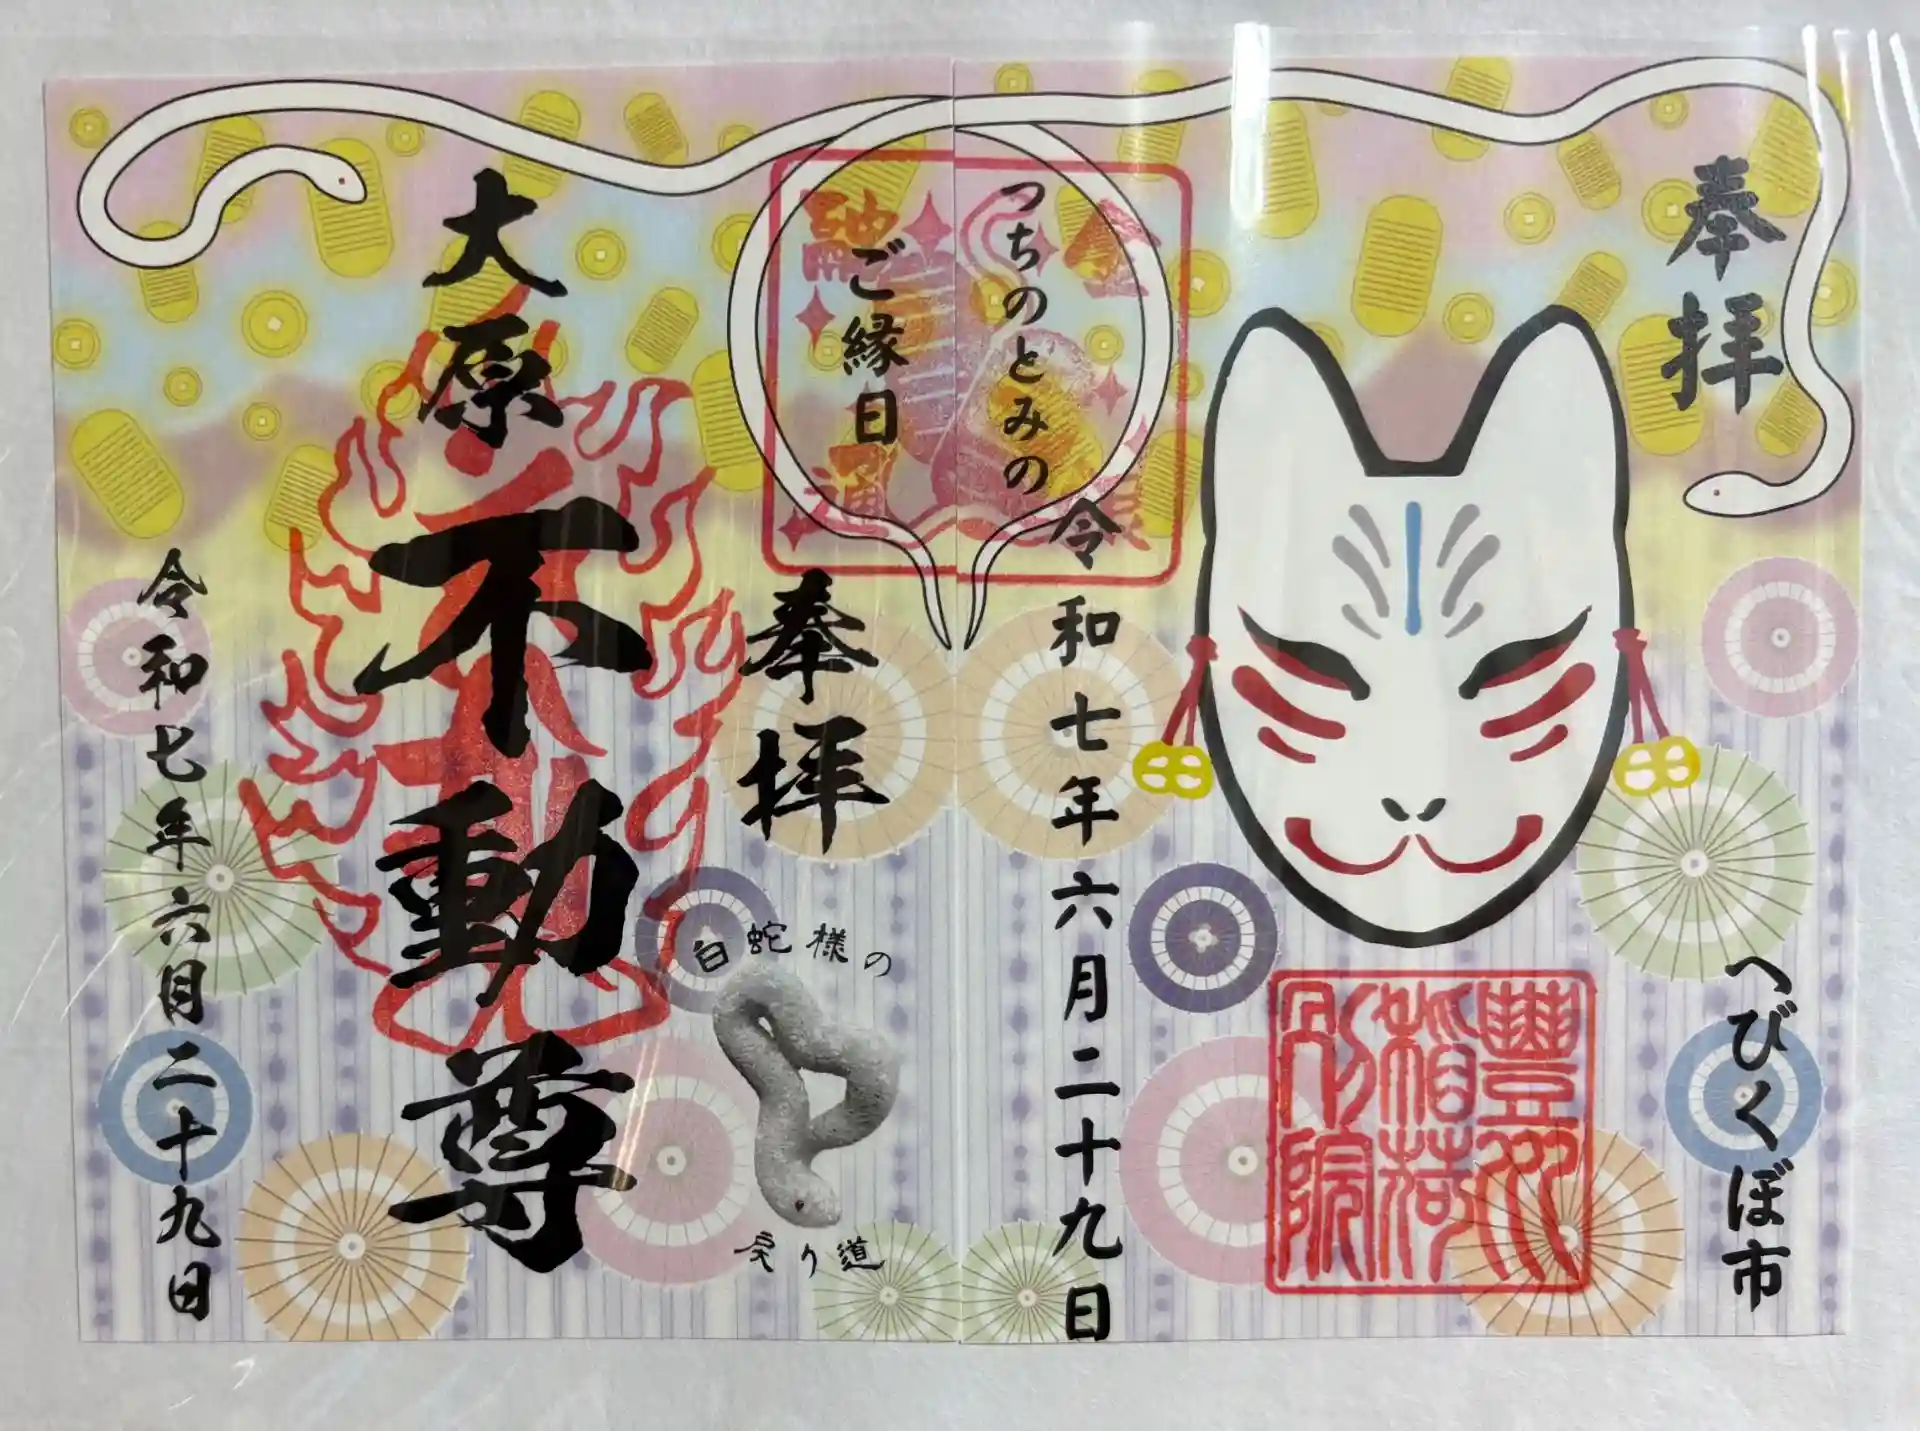 奉拝
へびくぼ市
豐川
稲荷
別院
令和七年六月二十九日
つちのとみの
ご縁日
金運
融通
奉拝
白蛇様の
戻り道
大原不動尊
令和七年六月二十九日